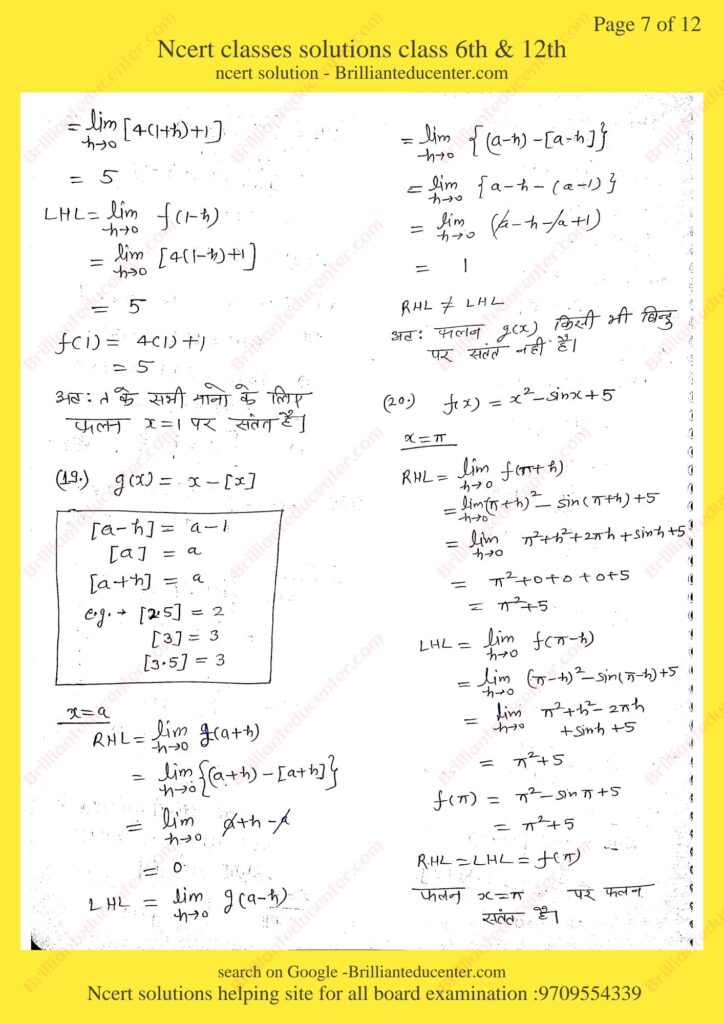 Page 7 of 12
Ncert classes solutions class 6th & 12th
ncert solution - Brillianteducenter.com
= lim h→0 [4(1+h)+1]
= 5
LHL = lim h→0 f(1-h)
= lim h→0 [4(1-h)+1]
= 5
f(1) = 4(1)+1
= 5
अतः λ के सभी मानो के लिए
फलन x=1 पर संतत है।
(19.) g(x) = x-[x]
[a-h] = a-1
[a] = a
[a+h] = a
e.g. → [2.5] = 2
[3] = 3
[3.5] = 3
x=a
RHL = lim h→0 g(a+h)
= lim h→0 {(a+h)-[a+h]}
= lim h→0 a+h-a
= 0
LHL = lim h→0 g(a-h)
= lim h→0 {(a-h)-[a-h]}
= lim h→0 {a-h-(a-1)}
= lim h→0 (a-h-a+1)
= 1
RHL ≠ LHL
अतः फलन g(x) किसी भी बिन्दु
पर संतत नही है।
(20.) f(x) = x²-sinx+5
x=π
RHL = lim h→0 f(π+h)
= lim h→0 (π+h)²-sin(π+h)+5
= lim h→0 π²+h²+2πh+sinh+5
= π²+0+0+0+5
= π²+5
LHL = lim h→0 f(π-h)
= lim h→0 (π-h)²-sin(π-h)+5
= lim h→0 π²+h²-2πh
+sinh+5
= π²+5
f(π) = π²-sinπ+5
= π²+5
RHL = LHL = f(π)
फलन x=π पर फलन
संतत है।
search on Google -Brillianteducenter.com
Ncert solutions helping site for all board examination :9709554339